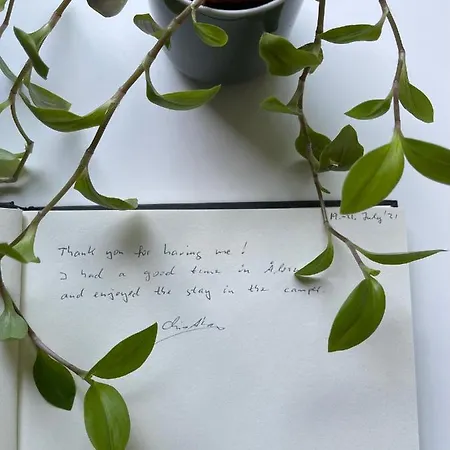 July '21
Thank you for having me!
I had a good time in
and enjoyed the stay in the